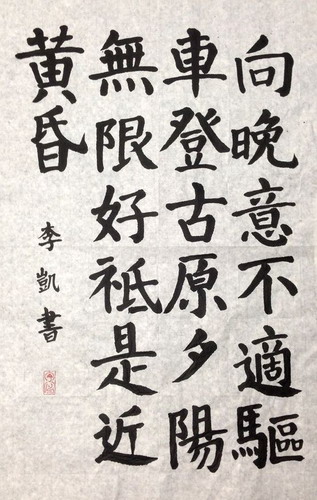 向晚意不適驅
車登古原夕陽
無限好祗是近
黃昏
李凱書